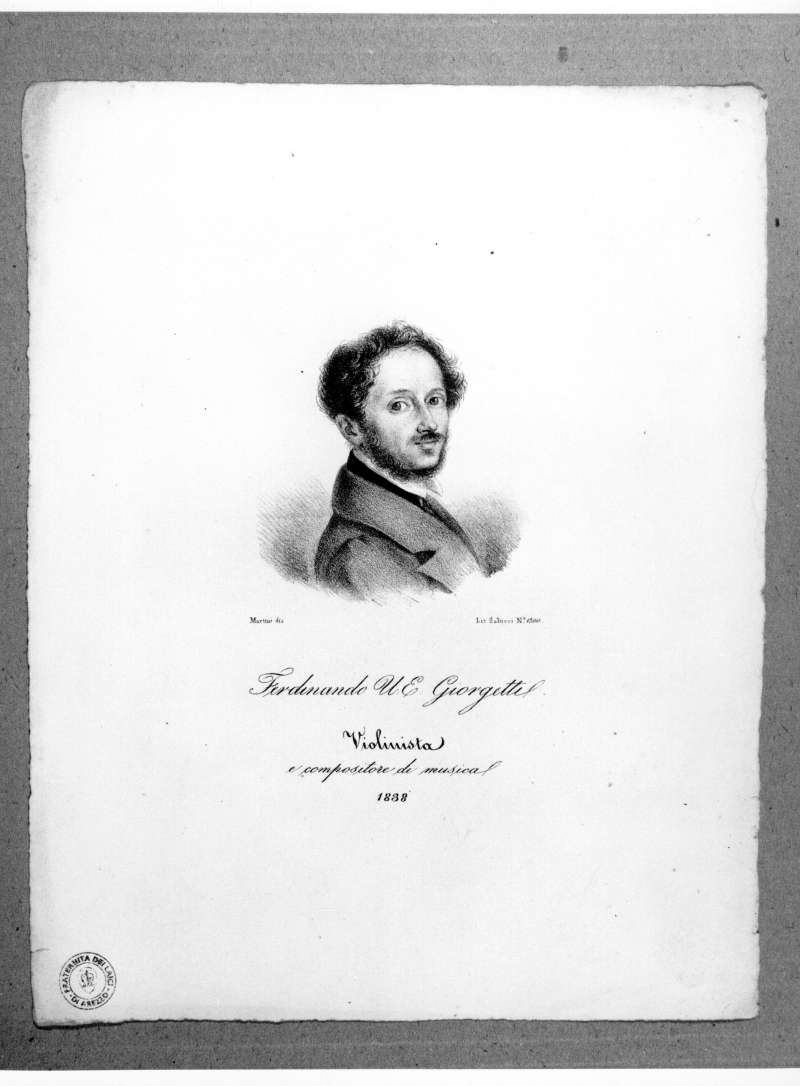 Martini dis
Lit. Salucci N.º 1500.
Ferdinando U E Giorgetti.
Violinista
e compositore di musica
1838
FRATERNITA DEI LAICI
DI AREZZO